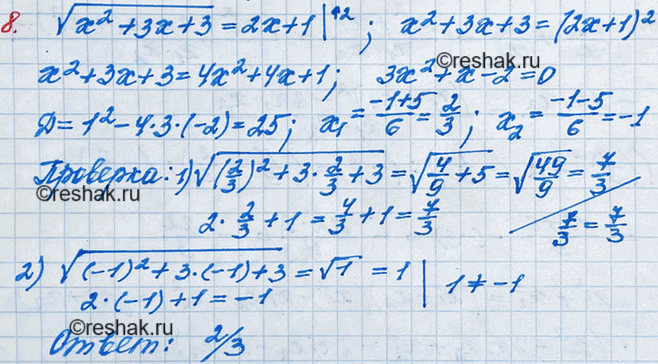 8. √(x²+3x+3) = 2x+1 |↑2 ; x²+3x+3=(2x+1)²
©reshak.ru
x²+3x+3=4x²+4x+1; 3x²+x-2=0
©reshak.ru
Д=1²-4·3·(-2)=25; x₁=(-1+5)/6=2/3; x₂=(-1-5)/6=-1
Проверка: 1)√((2/3)²+3·2/3+3)=√(4/9+5)=√(49/9)=7/3
©reshak.ru
2·2/3+1=4/3+1=7/3 7/3=7/3
2) √((-1)²+3·(-1)+3)=√1=1 | 1≠-1
2·(-1)+1=-1
©reshak.ru
Ответ: 2/3